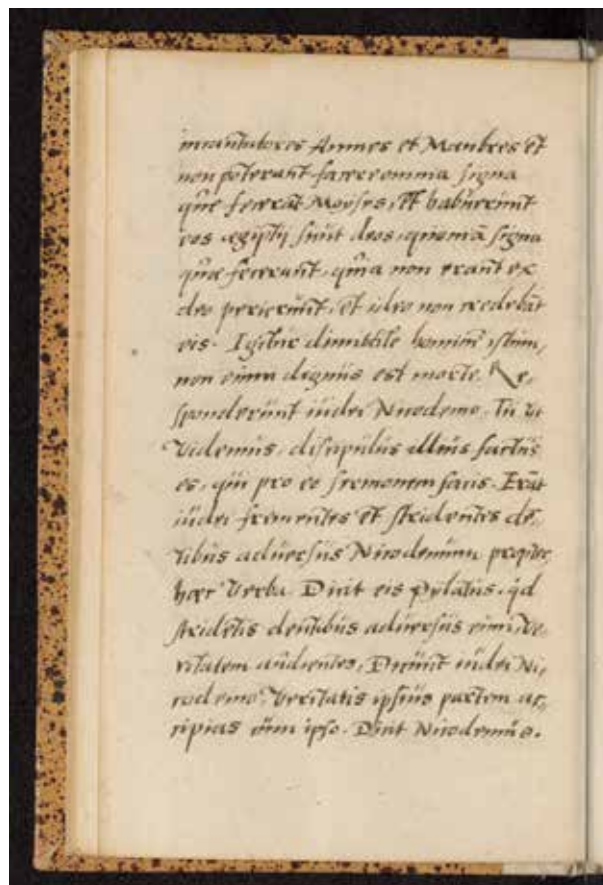 incantatores Jamnes et Mambres et
non poterant facere omnia signa
que fecerāt Moyses, et habuerunt
eos ægiptij sicut deos, quoniā signa
quæ fecerunt, quia non erant ex
deo perierūt, et ideo non credebāt
eis. Igitur dimittite hominē istum,
non enim dignus est morte. Re,
sponderunt iudei Nicodemo. Tu vt
videmus, discipulus illius factus
es, qui pro eo sermonem facis. Erāt
iudei frementes et stridentes dē,
tibus aduersus Nicodemum propter
hæc verba. Dicit eis Pylatus, qd
stridetis dentibus aduersus eum, ve,
ritatem audientes, Dicunt iudei Ni,
codemo, veritatis ipsius partem ac,
cipias cum ipso. Dicit Nicodemus.